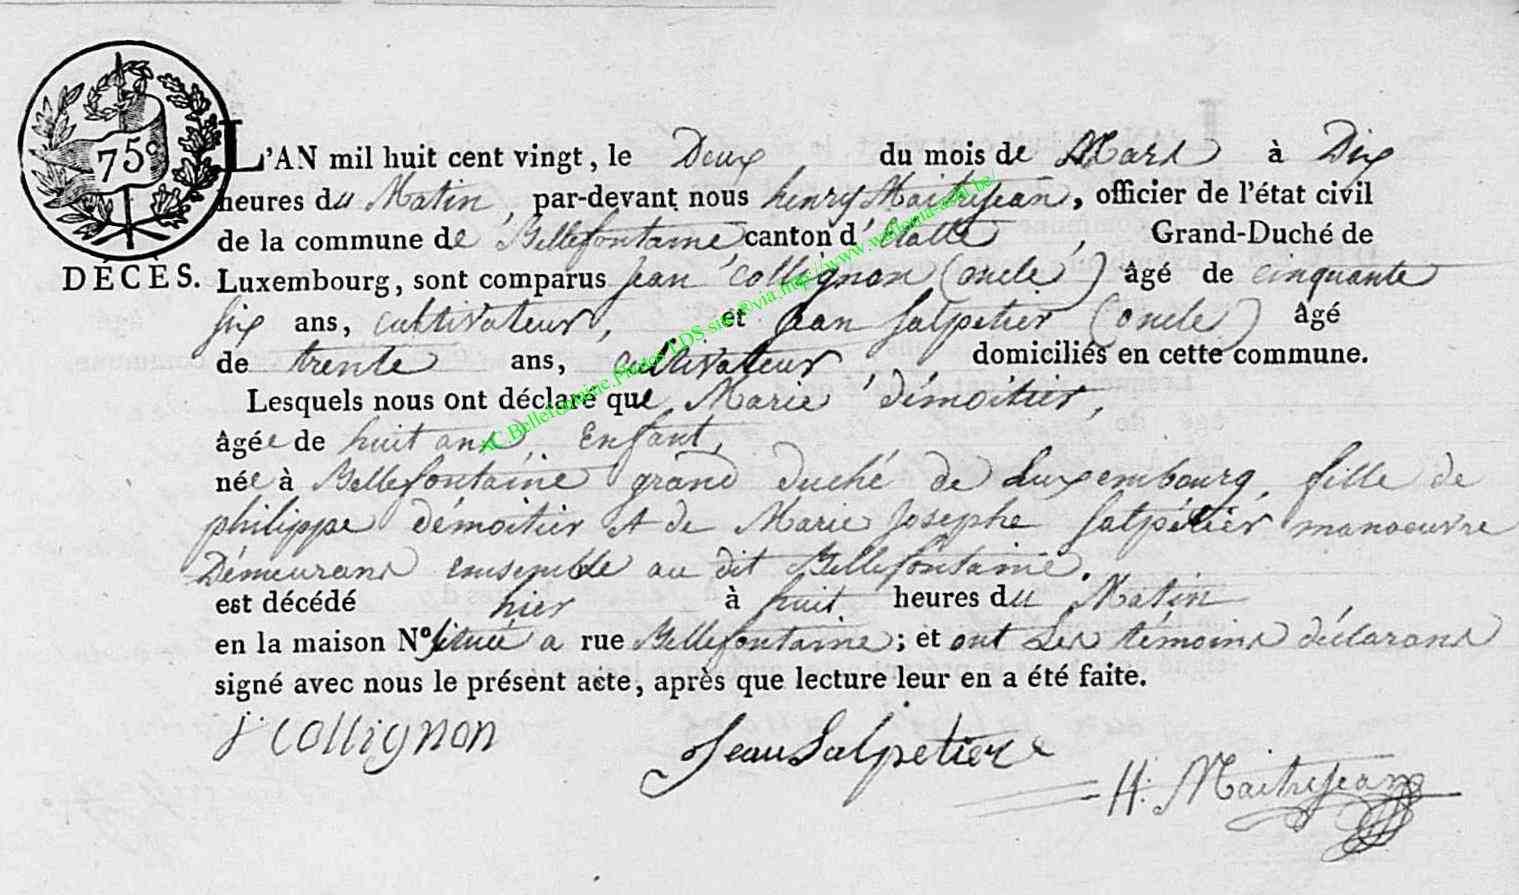 75c
L'AN mil huit cent vingt, le Deux du mois de Mars à Dix
heures du Matin, par-devant nous henry Maitrejean, officier de l'état civil
de la commune de Bellefontaine canton d'Etalle, Grand-Duché de
DÉCÈS. Luxembourg, sont comparus jean Collignon (oncle) âgé de cinquante
six ans, cultivateur, et jean Salpetier (oncle) âgé
de trente ans, cultivateur domiciliés en cette commune.
Lesquels nous ont déclaré que Marie démoitier,
âgée de huit ans, Enfant,
née à Bellefontaine grand duché de Luxembourg, fille de
philippe démoitier et de Marie Josephe Salpétier manoeuvre
Démeurans ensemble au dit Bellefontaine.
est décédé hier à huit heures du Matin
en la maison N° située a rue Bellefontaine; et ont Les témoins déclarans
signé avec nous le présent acte, après que lecture leur en a été faite.
j: collignon
Jean Salpetier
H: Maitrejean
AC Bellefontaine Photos LDS sur